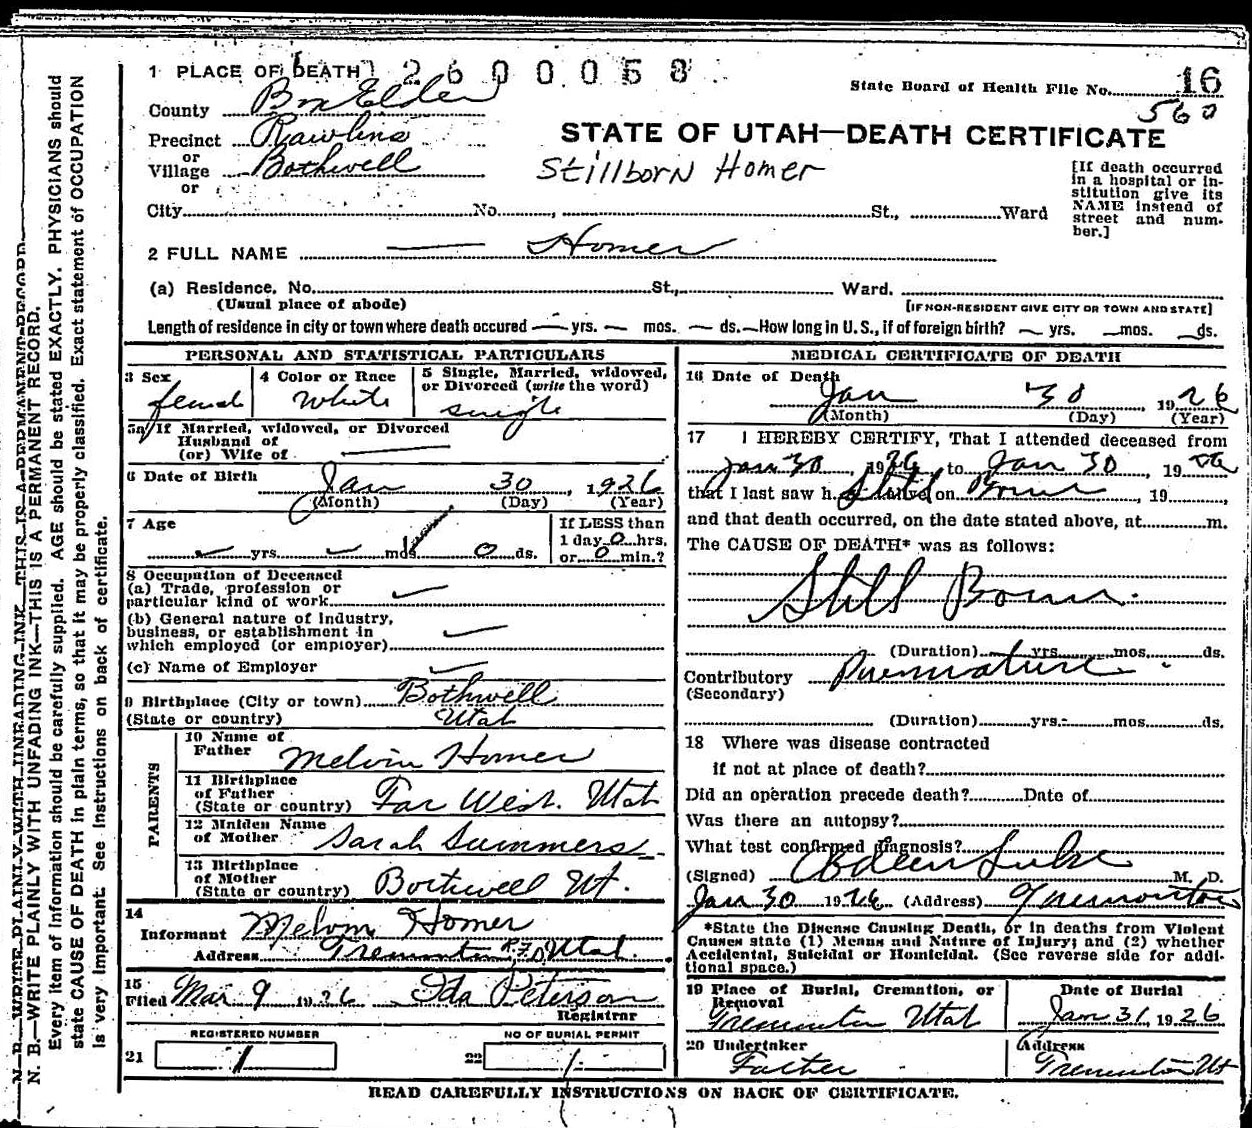 1 PLACE OF DEATH 12600058
State Board of Health File No. 16
560
County Box Elder
Precinct Rawlins
or
Village Bothwell
or
STATE OF UTAH—DEATH CERTIFICATE
Stillborn Homer
[If death occurred in a hospital or institution give its NAME instead of street and number.]
City No. , St., Ward
2 FULL NAME — Homer
(a) Residence, No. St., Ward.
(Usual place of abode) [IF NON-RESIDENT GIVE CITY OR TOWN AND STATE]
Length of residence in city or town where death occured — yrs. — mos. — ds.—How long in U. S., if of foreign birth? — yrs. —mos. —ds.
PERSONAL AND STATISTICAL PARTICULARS
3 Sex
female
4 Color or Race
White
5 Single, Married, widowed,
or Divorced (write the word)
single
5a If Married, widowed, or Divorced
Husband of
(or) Wife of —
6 Date of Birth Jan 30, 1926
(Month) (Day) (Year)
7 Age
yrs. mos. 0 ds.
If LESS than
1 day 0 hrs.
or 0 min.?
8 Occupation of Deceased
(a) Trade, profession or
particular kind of work
(b) General nature of Industry,
business, or establishment in
which employed (or employer)
(c) Name of Employer
9 Birthplace (City or town) Bothwell
(State or country) Utah
PARENTS
10 Name of
Father Melvin Homer
11 Birthplace
of Father
(State or country) Far West. Utah
12 Maiden Name
of Mother Sarah Summers
13 Birthplace
of Mother
(State or country) Bothwell Ut.
14
Informant Melvin Homer
Address Tremonton R.F.D. Utah.
15
Filed Mar 9 1926 Ida Peterson
Registrar
REGISTERED NUMBER
21 1
NO OF BURIAL PERMIT
22 1
MEDICAL CERTIFICATE OF DEATH
16 Date of Death
Jan 30, 1926
(Month) (Day) (Year)
17 I HEREBY CERTIFY, That I attended deceased from
Jan 30, 1926 to Jan 30, 19 26
that I last saw h alive on Still Born, 19 ,
and that death occurred, on the date stated above, at m.
The CAUSE OF DEATH* was as follows:
Still Born.
(Duration) yrs. mos. ds.
Contributory Premature
(Secondary)
(Duration) yrs. mos. ds.
18 Where was disease contracted
if not at place of death?
Did an operation precede death? Date of
Was there an autopsy?
What test confirmed diagnosis?
(Signed) Luke M. D.
Jan 30 1926 (Address) Tremonton
*State the Disease Causing Death, or in deaths from Violent
Causes state (1) Means and Nature of Injury; and (2) whether
Accidental, Suicidal or Homicidal. (See reverse side for addi-
tional space.)
19 Place of Burial, Cremation, or
Removal
Tremonton Utah
Date of Burial
Jan 31, 1926
20 Undertaker
Father
Address
Tremonton Ut
READ CAREFULLY INSTRUCTIONS ON BACK OF CERTIFICATE.
N. B.—WRITE PLAINLY WITH UNFADING INK—THIS IS A PERMANENT RECORD.
N. B.—WRITE PLAINLY WITH UNFADING INK—THIS IS A PERMANENT RECORD.
Every item of information should be carefully supplied. AGE should be stated EXACTLY. PHYSICIANS should
state CAUSE OF DEATH in plain terms, so that it may be properly classified. Exact statement of OCCUPATION
is very important. See instructions on back of certificate.